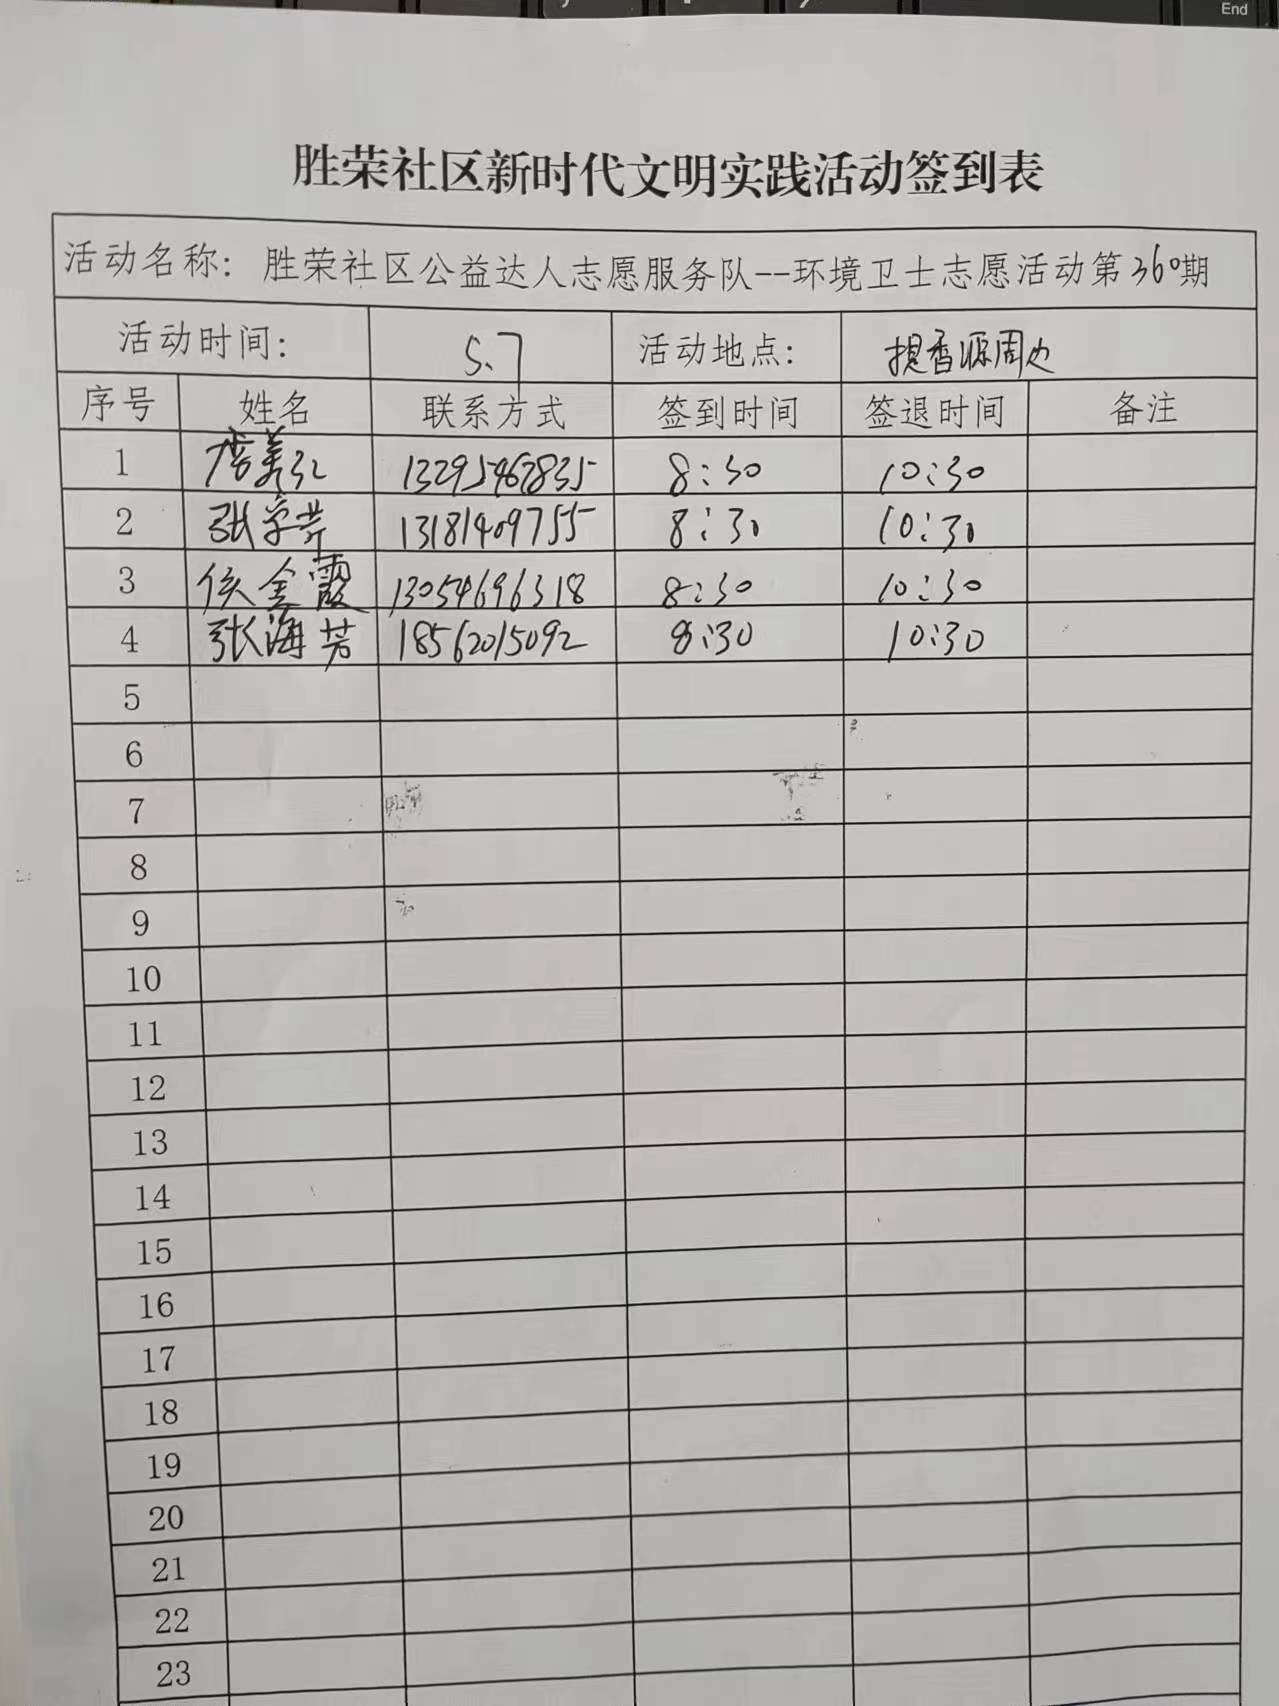 End
胜荣社区新时代文明实践活动签到表
活动名称：胜荣社区公益达人志愿服务队--环境卫士志愿活动第360期
活动时间： 5.7 活动地点： 提香源周边
序号 姓名 联系方式 签到时间 签退时间 备注
1 13295462835 8:30 10:30
2 张 芹 13181409755 8:30 10:30
3 侯金霞 13054696318 8:30 10:30
4 张海芳 18562015092 8:30 10:30
5
6
7
8
9
10
11
12
13
14
15
16
17
18
19
20
21
22
23